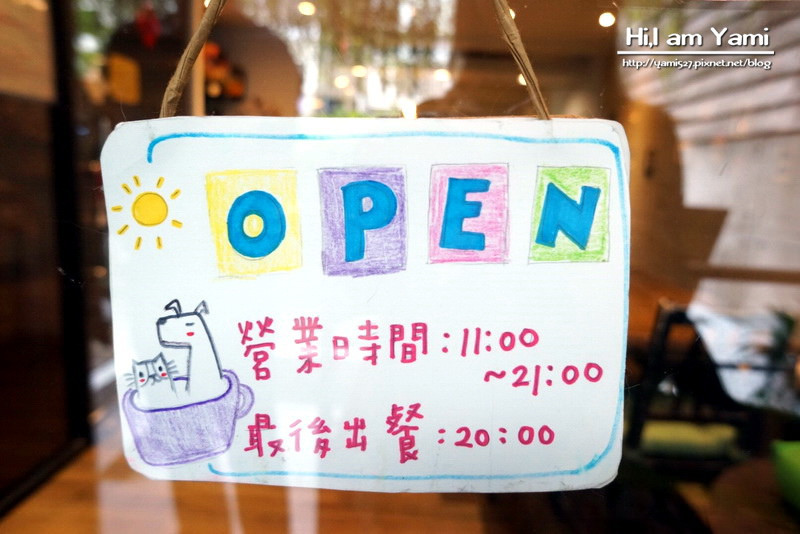 Hi,I am Yami
http://yami527.pixnet.net/blog
OPEN
營業時間:11:00
~21:00
最後出餐:20:00